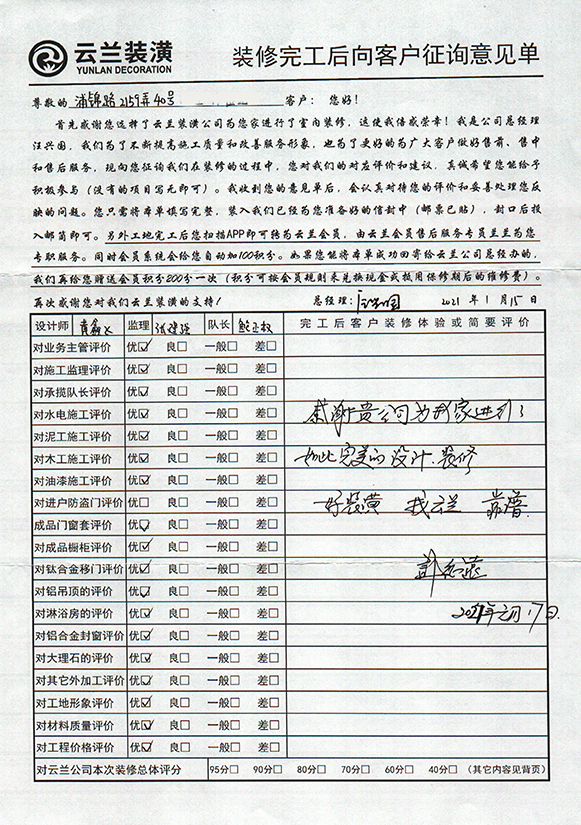 云兰装潢
YUNLAN DECORATION
装修完工后向客户征询意见单
尊敬的 浦锦路2159弄40号 客户：您好！
首先感谢您选择了云兰装潢公司为您家进行了室内装修，这使我倍感荣幸！我是公司总经理
汪兴国，我们为了不断提高施工质量和改善服务形象，也为了更好的为广大客户做好售前、售中
和售后服务，现向您征询我们在装修的过程中，您对我们的对应评价和建议，真诚希望您能给予
积极参与（没有的项目写无即可）。我收到您的意见单后，会认真对待您的评价和妥善处理您反
映的问题。您只需将本单填写完整，装入我们已经为您准备好的信封中（邮票已贴），封口后投
入邮筒即可。另外工地完工后您扫描APP即可转为云兰会员，由云兰会员售后服务专员兰兰为您
专职服务。同时会员系统会给您自动加100积分。如果您能将本单成功回寄给云兰公司总经办的，
我们再给您赠送会员积分200分一次（积分可按会员规则来兑换现金或抵用保修期后的维修费）。
再次感谢您对我们云兰装潢的支持！ 总经理： 2021年1月15日
设计师 监理 队长 完工后客户装修体验或简要评价
对业务主管评价 优☑ 良□ 一般□ 差□
对施工监理评价 优☑ 良□ 一般□ 差□
对承揽队长评价 优☑ 良□ 一般□ 差□
对水电施工评价 优☑ 良□ 一般□ 差□ 感谢贵公司为我家进行了
对泥工施工评价 优☑ 良□ 一般□ 差□
对木工施工评价 优☑ 良□ 一般□ 差□ 如此完美的设计、装修
对油漆施工评价 优☑ 良□ 一般□ 差□
对进户防盗门评价 优□ 良□ 一般□ 差□ 好装潢 找云兰 靠谱
成品门窗套评价 优☑ 良□ 一般□ 差□
对成品橱柜评价 优☑ 良□ 一般□ 差□
对钛合金移门评价 优☑ 良□ 一般□ 差□
对铝吊顶的评价 优☑ 良□ 一般□ 差□
对淋浴房的评价 优☑ 良□ 一般□ 差□ 2021年元月17日
对铝合金封窗评价 优☑ 良□ 一般□ 差□
对大理石的评价 优☑ 良□ 一般□ 差□
对其它外加工评价 优☑ 良□ 一般□ 差□
对工地形象评价 优☑ 良□ 一般□ 差□
对材料质量评价 优☑ 良□ 一般□ 差□
对工程价格评价 优☑ 良□ 一般□ 差□
对云兰公司本次装修总体评分 95分□ 90分□ 80分□ 70分□ 60分□ 40分□ （其它内容见背页）